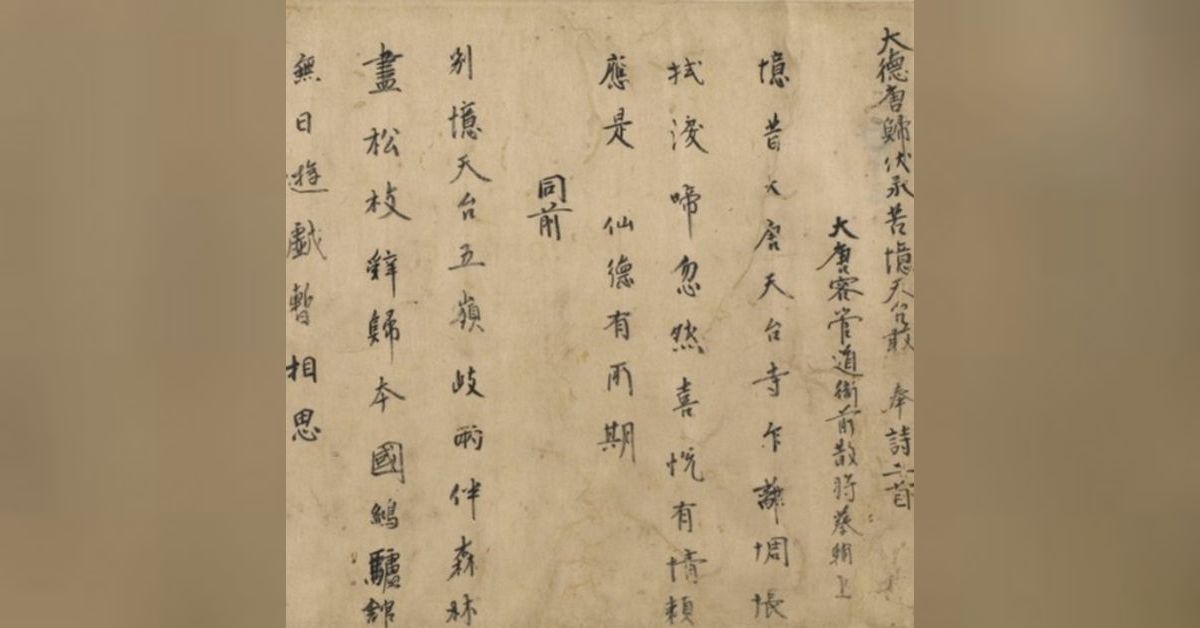 大德唐歸伏承苦憶天台敢 奉詩二首
大唐容管道衙前散將蔡輔上
憶昔大唐天台寺乍辭惆悵
拭淚啼忽然喜悅有情賴
應是 仙德有雨期
同前
別憶天台五嶺歧兩伴森林
盡松枝辭歸本國鴻驢館
無日遊戲暫相思